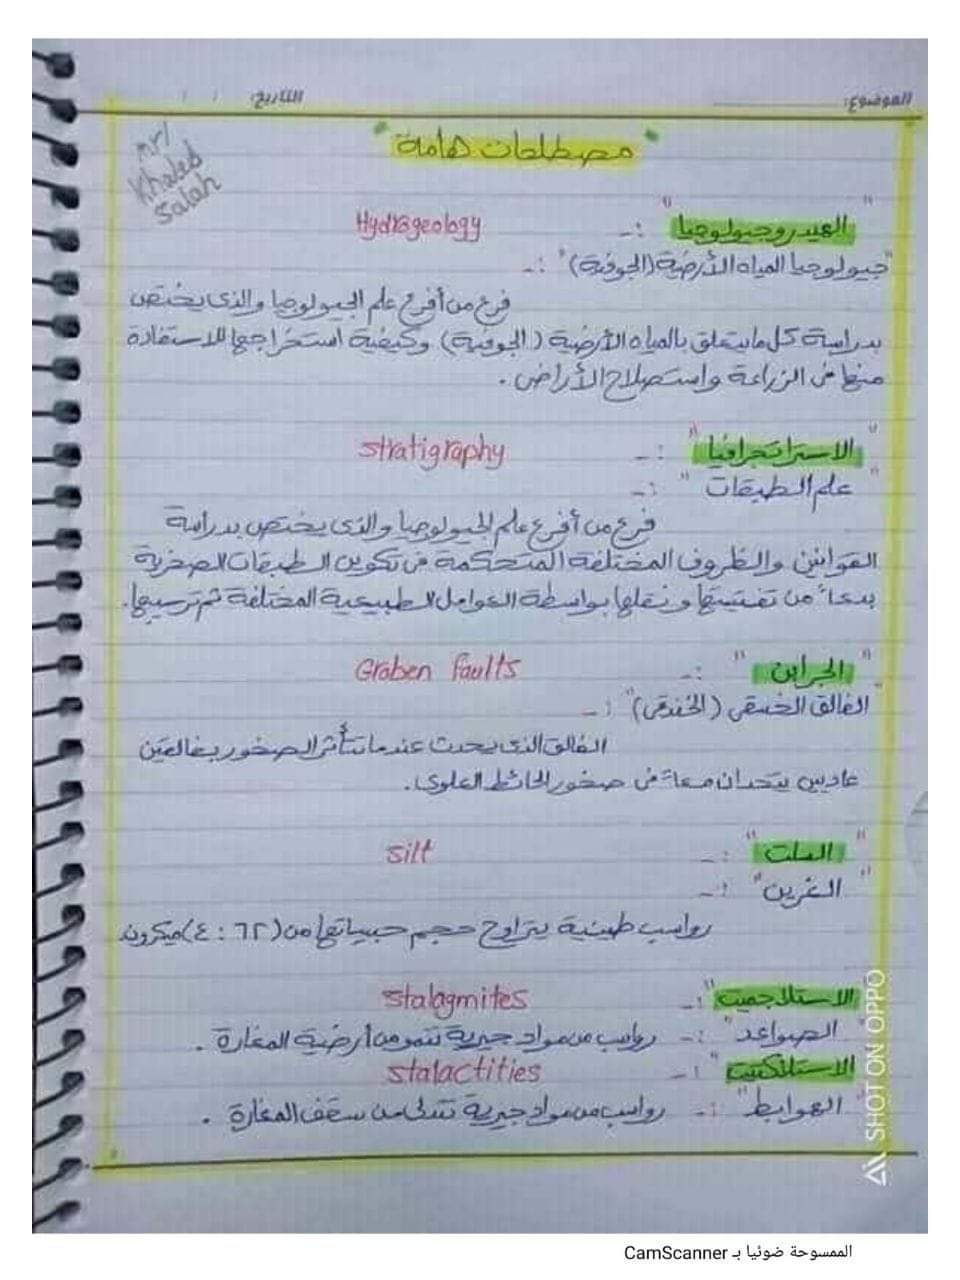 الموضوع:
التاريخ: / /
Mr/
Khaled
Salah
"مصطلحات هامة"
"الهيدروجيولوجيا" :- Hydrogeology
"جيولوجيا المياه الأرضية (الجوفية)" :-
فرع من أفرع علم الجيولوجيا والذى يختص
بدراسة كل ما يتعلق بالمياه الأرضية (الجوفية) وكيفية استخراجها للاستفادة
منها فى الزراعة واستصلاح الأراضى .
"الاستراتجرافيا" :- stratigraphy
"علم الطبقات" :-
فرع من أفرع علم الجيولوجيا والذى يختص بدراسة
القوانين والظروف المختلفة المتحكمة فى تكوين الطبقات الصخرية
بدءاً من تفتيتها ونقلها بواسطة العوامل الطبيعية المختلفة ثم ترسيبها.
"الجرابن" :- Graben faults
"الفالق الخسفى (الخندقى)" :-
الفالق الذى يحدث عندما تتأثر الصخور بفالقين
عاديين يتحدان معاً فى صخور الحائط العلوى.
"السلت" :- silt
"الغرين" :-
رواسب طينية يتراوح حجم حبيباتها من (٦٢ : ٤) ميكرون
"الاستلاجميت" :- stalagmites
"الصواعد" :- رواسب من مواد جيرية تنمو من أرضية المغارة .
"الاستلاكتيت" :- stalactities
"الهوابط" :- رواسب من مواد جيرية تتدلى من سقف المغارة .
SHOT ON OPPO
الممسوحة ضوئيا بـ CamScanner